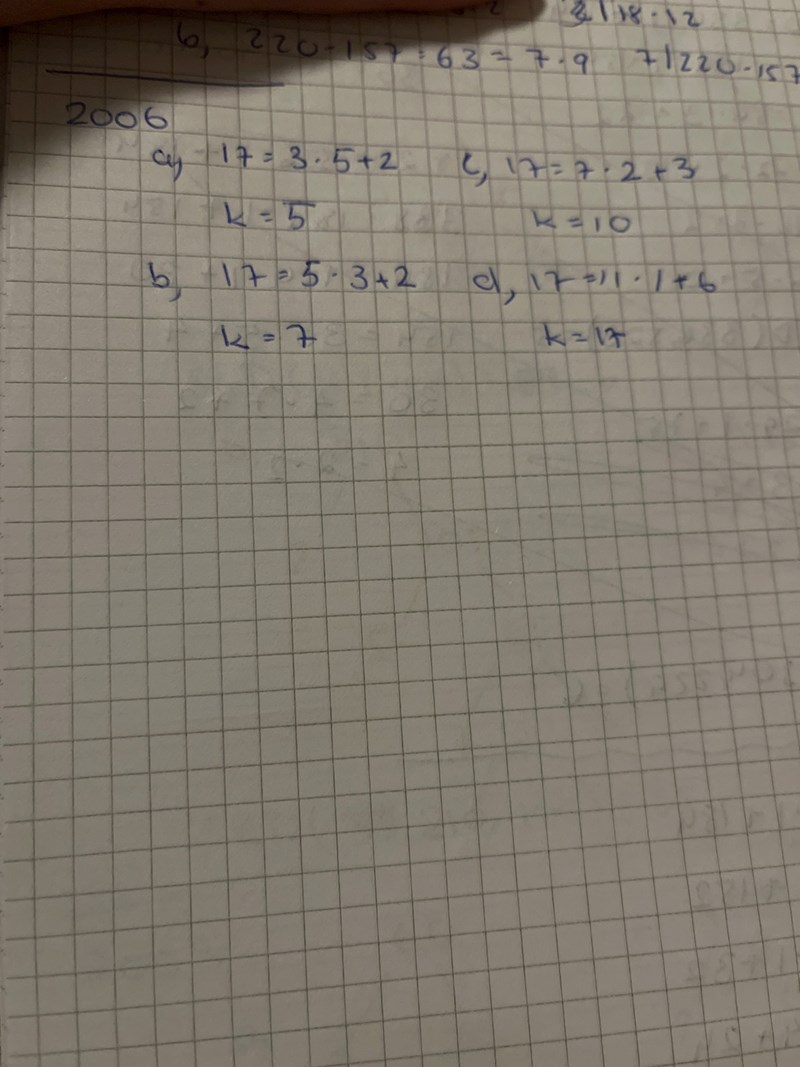 2 | 18 · 12
b, 220 - 157 = 63 = 7 · 9 7 | 220 - 157
2006
a, 17 = 3 · 5 + 2 c, 17 = 7 · 2 + 3
k = 5 k = 10
b, 17 = 5 · 3 + 2 d, 17 = 11 · 1 + 6
k = 7 k = 17